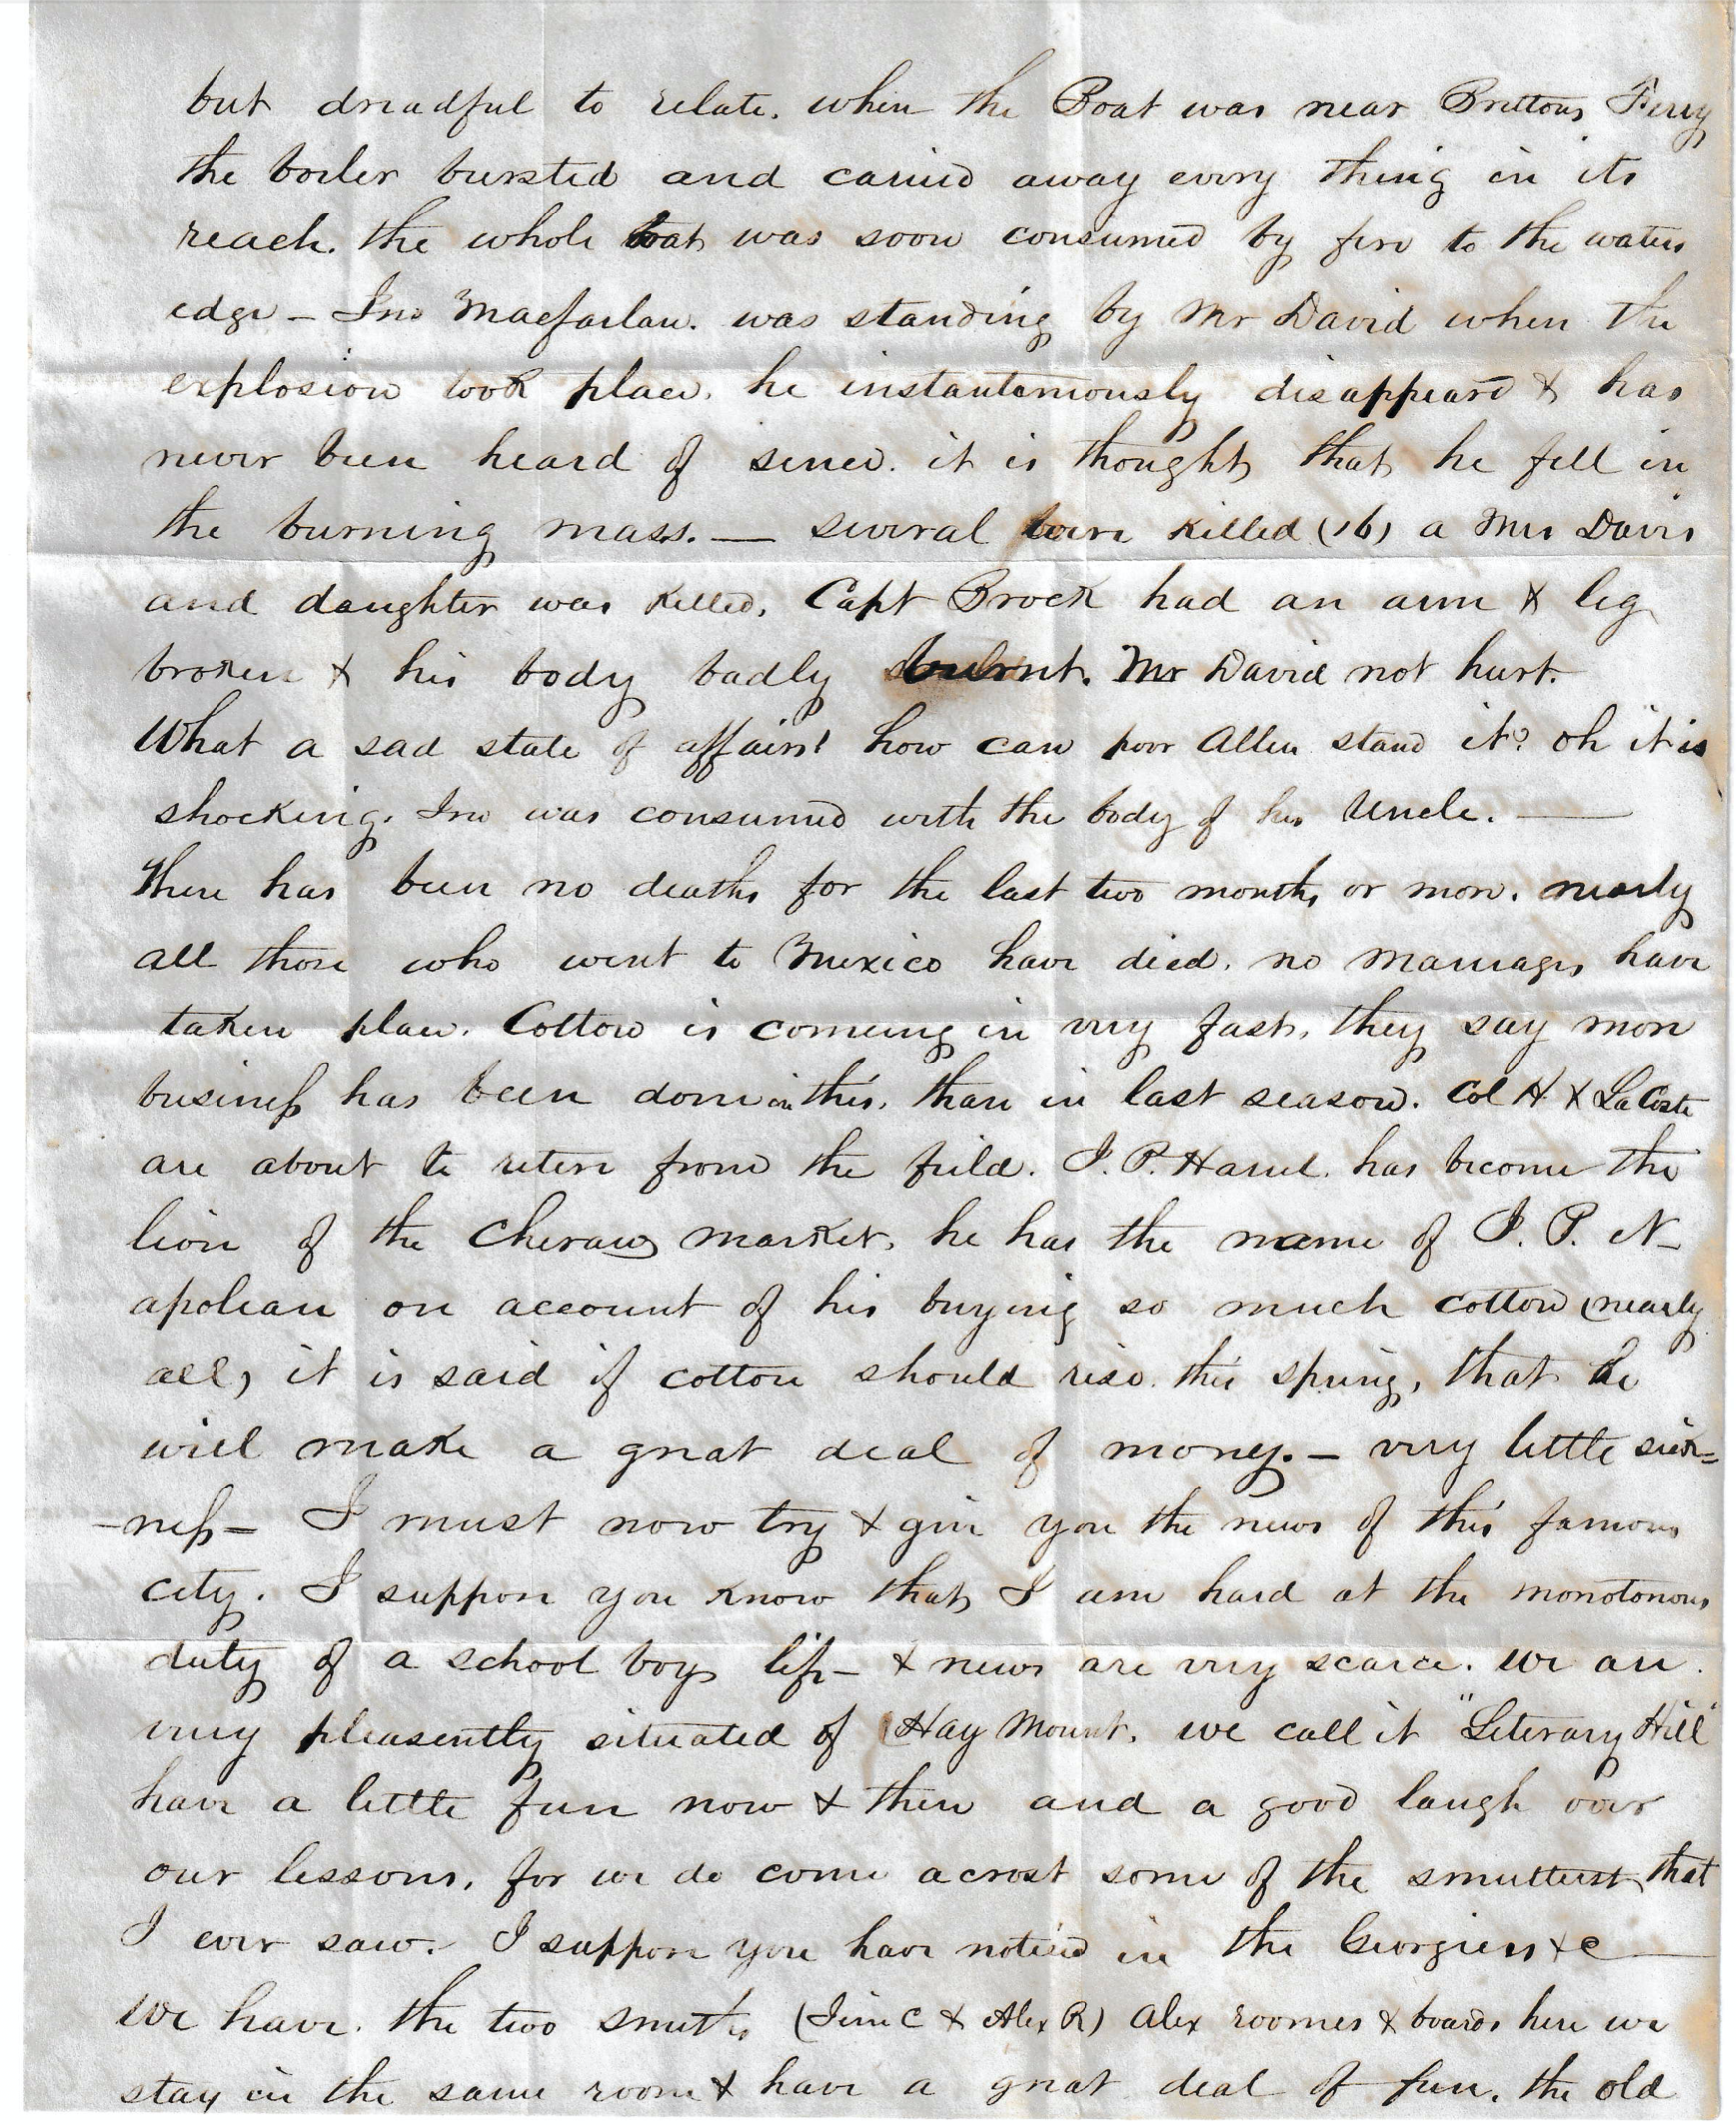 but dreadful to relate. when the Boat was near Brittons Ferry
the boiler bursted and carried away every thing in its
reach. the whole boat was soon consumed by fire to the waters
edge – Jno Macfarlan. was standing by Mr David when the
explosion took place. he instantaniously disappeard & has
never been heard of since. it is thought that he fell in
the burning mass. — several were killed (16) a Mrs Davis
and daughter was killed. Capt Brock had an arm & leg
broken & his body badly burnt. Mr David not hurt.
What a sad state of affairs! how can poor Allen stand it? oh it is
shocking. Jno was consumed with the body of his Uncle. —
There has been no deaths for the last two months or more. nearly
all those who went to Mexico have died. no marriages have
taken place. Cotton is comeing in very fast. they say more
business has been done in this. than in last season. Col H & LaCoste
are about to retire from the field. J. P. Harrel. has become the
lion of the Cheraw market. he has the name of J. P. N-
apolean on account of his buying so much cotton (nearly
all) it is said if cotton should rise this spring, that he
will make a great deal of money. – very little sick=
-ness – I must now try & give you the news of this famous
city. I suppose you know that I am hard at the monotonous
duty of a school boys life – & news are very scarce. we are
very pleasently situated of Hay Mount. we call it "Literary Hill"
have a little fun now & then and a good laugh over
our lessons, for we do come acrost some of the smuttest that
I ever saw. I suppose you have noticed in the Georgics &c —
We have. the two Smiths (Jim C & Alex R) Alex roomes & boards here we
stay in the same room & have a great deal of fun. the old